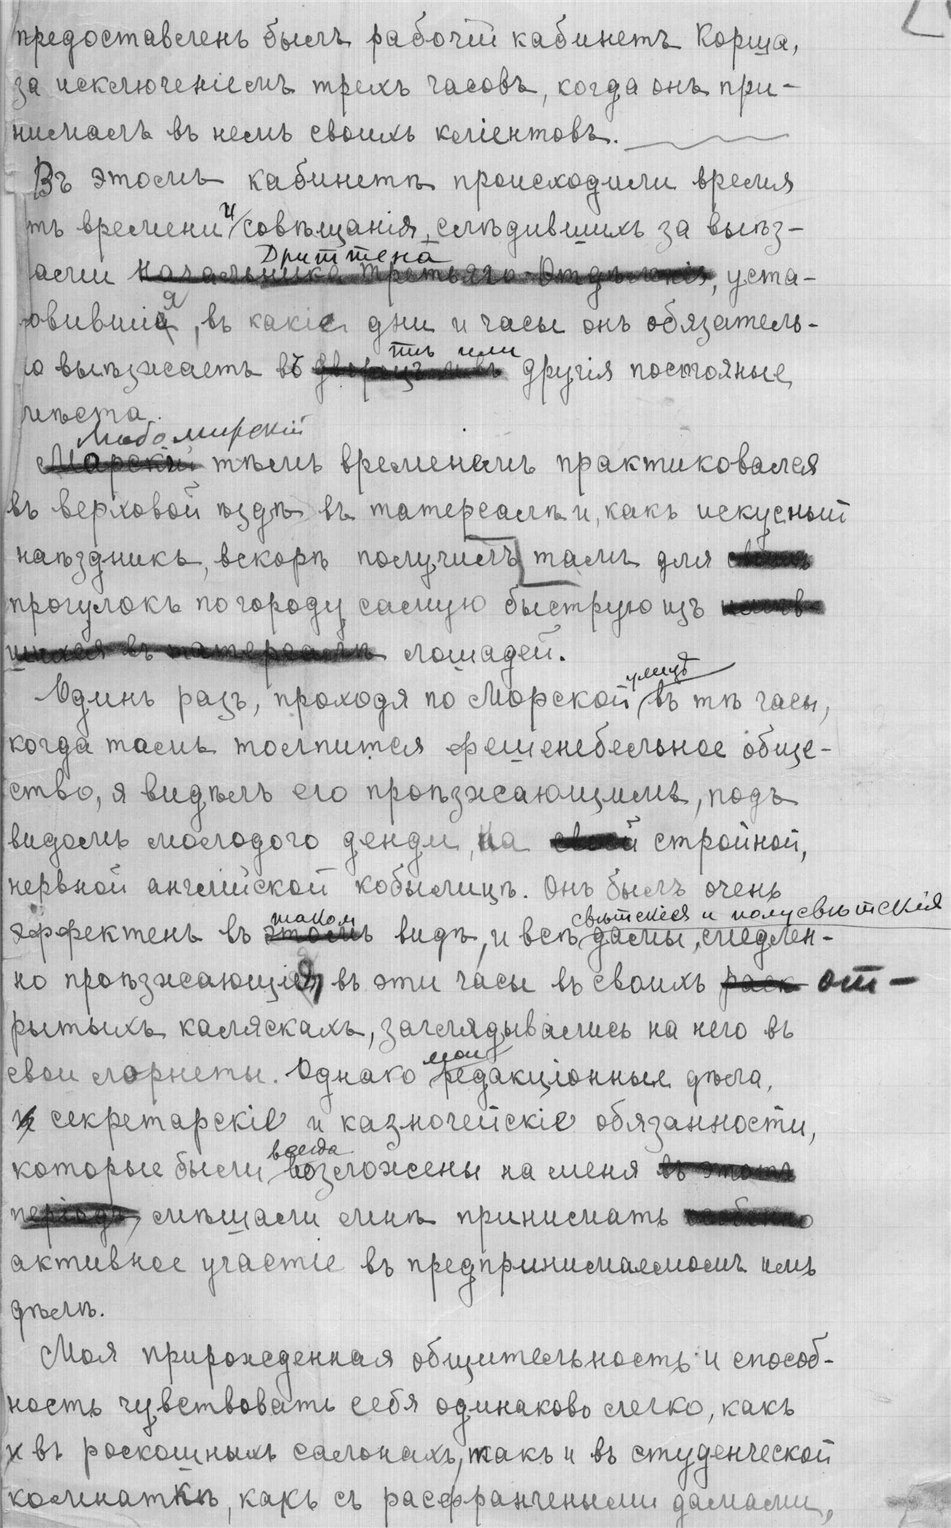 предоставленъ былъ рабочій кабинетъ Корша,
за исключеніемъ трехъ часовъ, когда онъ при-
нималъ въ немъ своихъ кліентовъ.
Въ этомъ кабинетѣ происходили время
тъ времени и совѣщанія слѣдившихъ за выѣз-
Дриттена
дами начальника Третьяго Отдѣленія, уста-
новившія, въ какіе дни и часы онъ обязатель-
тѣ или
но выѣзжаетъ въ дворецъ и въ другія постояные
мѣста.
Любомирскій
Марскій тѣмъ временемъ практиковался
въ верховой ѣздѣ въ татерсалѣ и, какъ искусный
наѣздникъ, вскорѣ получилъ тамъ для
прогулокъ по городу самую быструю изъ
въ татерсалѣ лошадей.
улицѣ
Одинъ разъ, проходя по Морской въ тѣ часы,
когда тамъ толпится фешенебельное обще-
ство, я видѣлъ его проѣзжающимъ, подъ
видомъ молодого денди, на своей стройной,
нервной англійской кобылицѣ. Онъ былъ очень
таком свѣтскія и полусвѣтскія
эффектенъ въ этомъ видѣ, и всѣ дамы, медлен-
но проѣзжающія въ эти часы въ своихъ раск от-
рытыхъ каляскахъ, заглядывались на него въ
мои
свои лорнеты. Однако редакціонные дѣла,
и секретарскіе и казночейскіе обязанности,
всегда
которые были возложены на меня въ этотъ
періодъ, мѣшали мнѣ принимать особенно
активное участіе въ предпринимаемомъ имъ
дѣлѣ.
Моя прирожденная общительность и способ-
ность чувствовать себя одинаково легко, какъ
и въ роскошныхъ салонахъ, такъ и въ студенческой
комнаткѣ, какъ съ расфранчеными дамами,